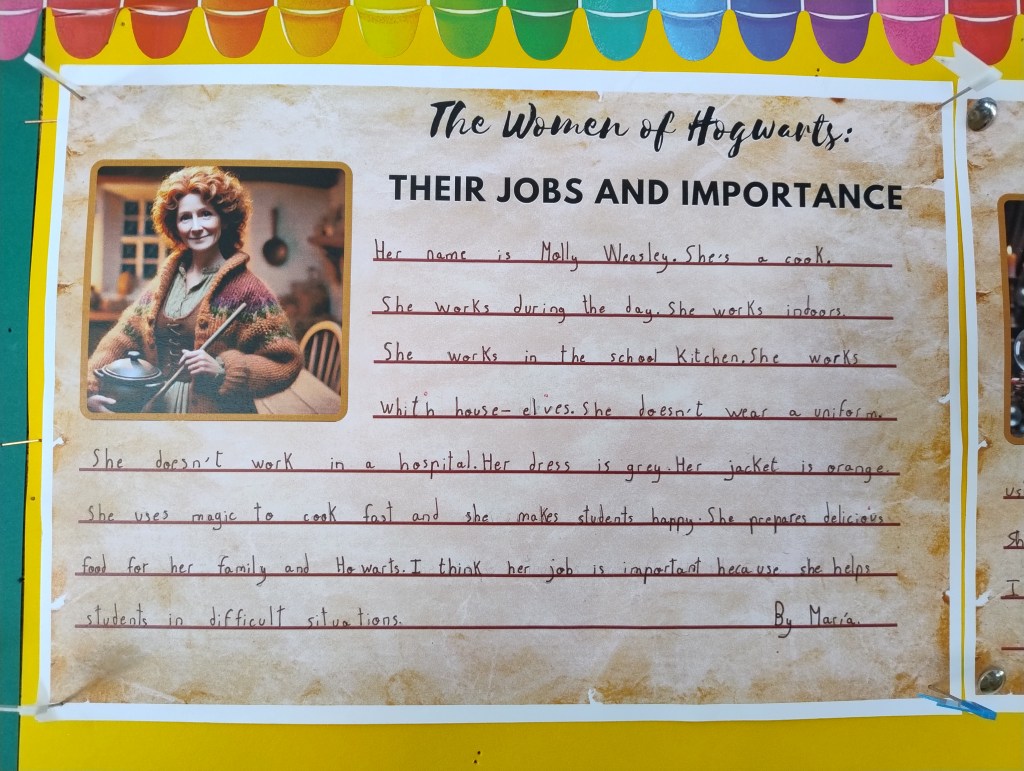 The Women of Hogwarts:
THEIR JOBS AND IMPORTANCE
Her name is Molly Weasley. She's a cook.
She works during the day. She works indoors.
She works in the school kitchen. She works
whith house-elves. She doesn't wear a uniform.
She doesn't work in a hospital. Her dress is grey. Her jacket is orange.
She uses magic to cook fast and she makes students happy. She prepares delicious
food for her family and Howarts. I think her job is important because she helps
students in difficult situations.
By María.
us
Sh
I